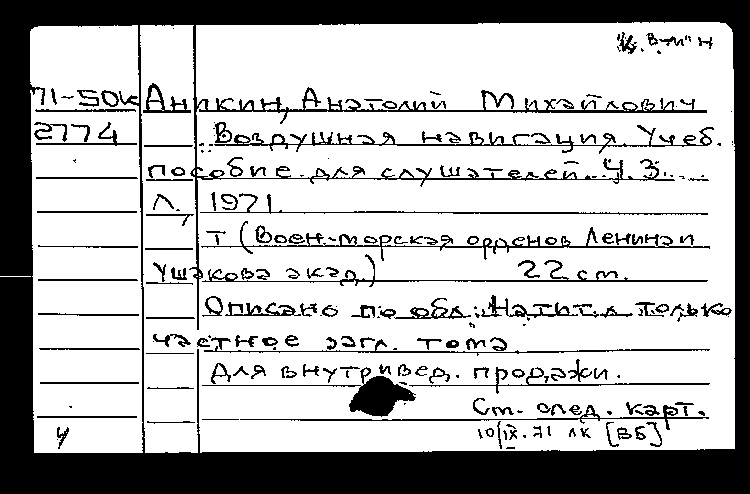 В-ти" н
71-50к Аникин, Анатолий Михайлович
2774 Воздушная навигация. Учеб.
пособие для слушателей. Ч. 3.
Л., 1971.
т (Воен-морская орденов Ленина и
Ушакова акад.) 22 см.
Описано по обл. На тит. л. только
частное загл. тома.
Для внутривед. продажи.
См. след. карт.
4 10/IX.71 лк [ВБ]